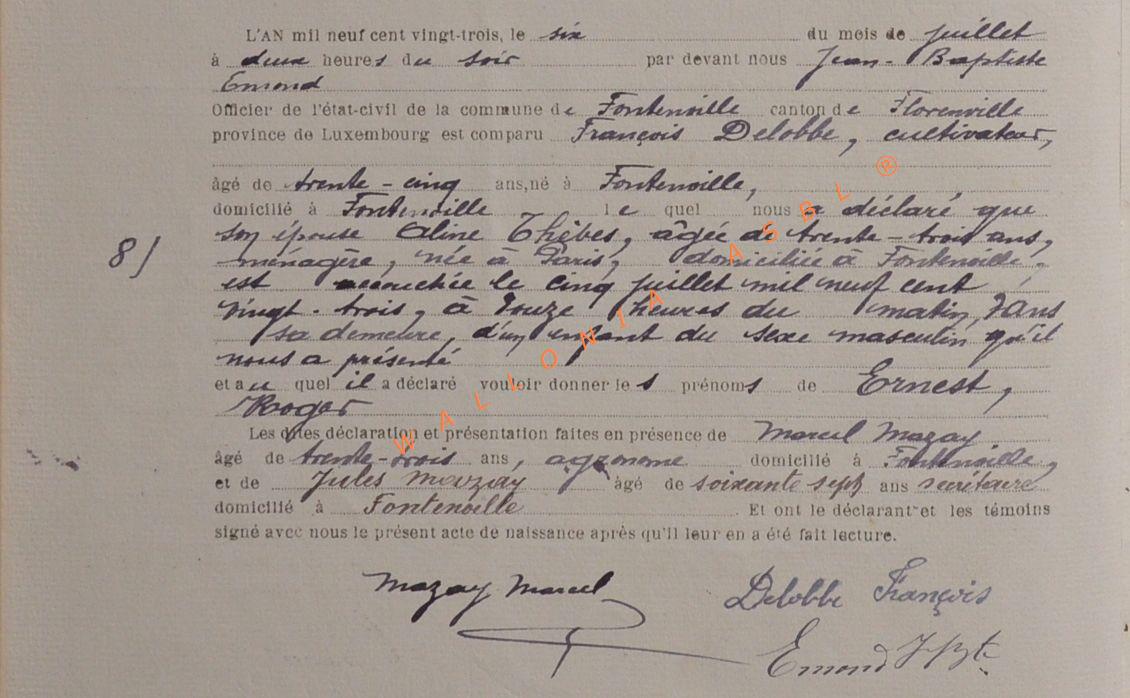 L'AN mil neuf cent vingt-trois, le six du mois de juillet
à deux heures du soir par devant nous Jean-Baptiste
Emond
Officier de l'état-civil de la commune de Fontenoille canton de Florenville
province de Luxembourg est comparu François Delobbe, cultivateur,
âgé de trente-cinq ans, né à Fontenoille,
domicilié à Fontenoille le quel nous a déclaré que
son épouse Aline Thèbes, âgée de trente-trois ans,
8/ ménagère, née à Paris, domiciliée à Fontenoille,
est accouchée le cinq juillet mil neuf cent
vingt-trois, à douze heures du matin, dans
sa demeure, d'un enfant du sexe masculin qu'il
nous a présenté
et au quel il a déclaré vouloir donner les prénoms de Ernest,
Roger
Les dites déclaration et présentation faites en présence de Marcel Mazay
âgé de trente-trois ans, agronome domicilié à Fontenoille,
et de Jules Mazay âgé de soixante sept ans secrétaire
domicilié à Fontenoille. Et ont le déclarant et les témoins
signé avec nous le présent acte de naissance après qu'il leur en a été fait lecture.
Mazay Marcel Delobbe François
Emond J Bte
WALLONIA ASBL ®